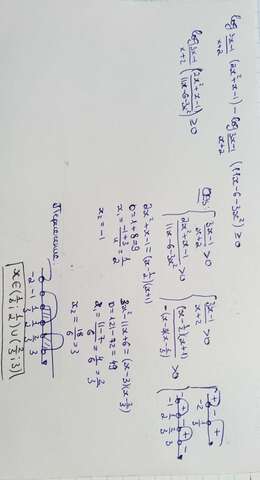 log_{(3x-1)/(x+2)} (2x²+x-1) - log_{(3x-1)/(x+2)} (11x-6-3x²) ≥ 0
log_{(3x-1)/(x+2)} ((2x²+x-1)/(11x-6-3x²)) ≥ 0
ОДЗ: { (3x-1)/(x+2) > 0
(2x²+x-1)/(11x-6-3x²) > 0
{ (3x-1)/(x+2) > 0
(x-1/2)(x+1)/(-(x-3)(x-2/3)) > 0
+ - +
-2 1/3
- + - + -
-1 1/2 2/3 3
2x²+x-1=(x-1/2)(x+1)
D=1+8=9
x₁=(-1+3)/4=1/2
x₂=-1
3x²-11x+6=(x-3)(x-2/3)
D=121-72=49
x₁=(11-7)/6=4/6=2/3
x₂=18/6=3
Пересечение:
-2 -1 1/3 1/2 2/3 3
x∈(1/3;1/2)∪(2/3;3)